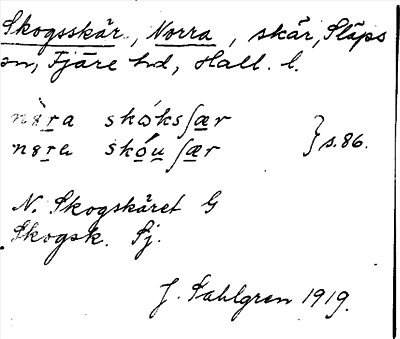 Skogsskär, Norra, skär, Släps
sn, Fjäre hd, Hall. l.
nøra skóksʃær
nøra skóuʃær } s. 86.
N. Skogskäret G
Skogsk. Sj.
J. Sahlgren 1919.